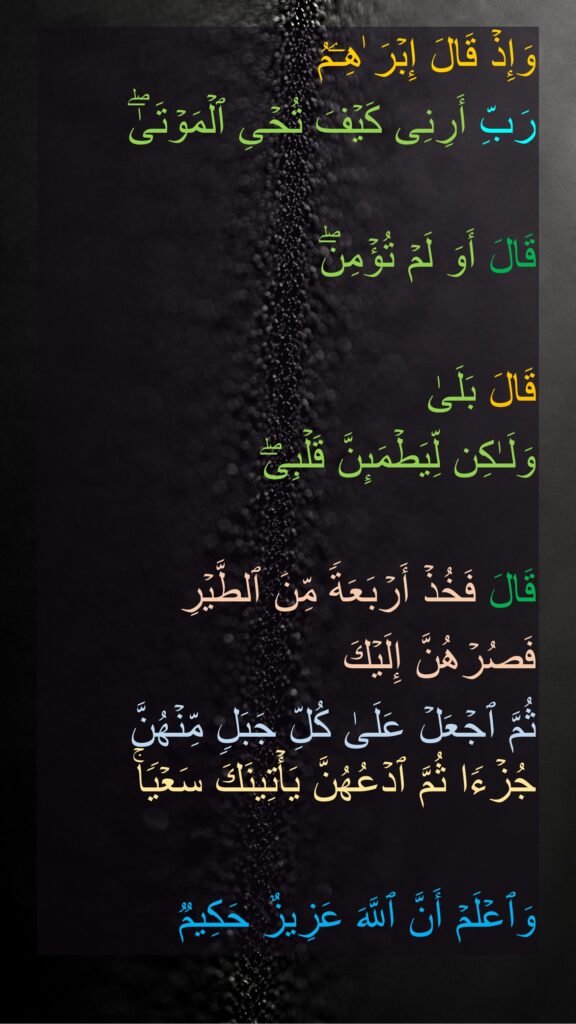 وَإِذۡ قَالَ إِبۡرَ ٰ⁠هِـۧمُ
رَبِّ أَرِنِی كَیۡفَ تُحۡیِ ٱلۡمَوۡتَىٰۖ
قَالَ أَوَ لَمۡ تُؤۡمِنۖ
قَالَ بَلَىٰ
وَلَـٰكِن لِّیَطۡمَىِٕنَّ قَلۡبِیۖ
قَالَ فَخُذۡ أَرۡبَعَةࣰ مِّنَ ٱلطَّیۡرِ
فَصُرۡهُنَّ إِلَیۡكَ
ثُمَّ ٱجۡعَلۡ عَلَىٰ كُلِّ جَبَلࣲ مِّنۡهُنَّ
جُزۡءࣰا ثُمَّ ٱدۡعُهُنَّ یَأۡتِینَكَ سَعۡیࣰاۚ
وَٱعۡلَمۡ أَنَّ ٱللَّهَ عَزِیزٌ حَكِیمࣱ